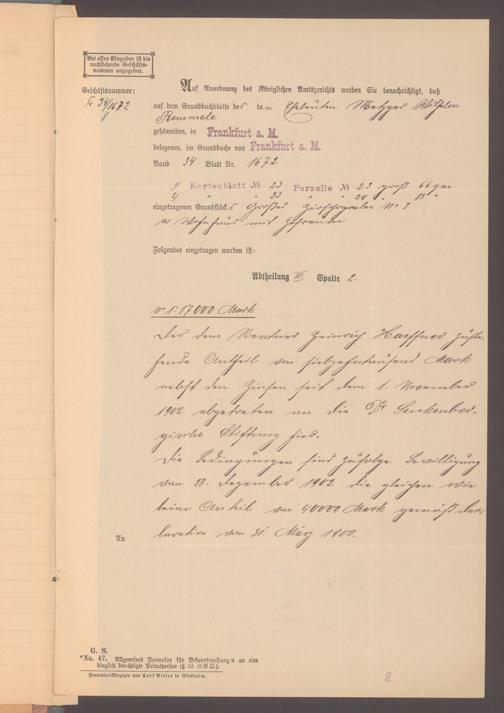 Bei allen Eingaben ist die
nachstehende Geschäfts-
nummer anzugeben.
Geschäftsnummer:
Fr. 34/1672
8
Auf Anordnung des Königlichen Amtsgerichts werden Sie benachrichtigt, daß
auf dem Grundbuchblatte des den Eheleuten Metzger Wilhelm
Remmele
gehörenden, in Frankfurt a. M.
belegenen, im Grundbuche von Frankfurt a. M.
Band 34 Blatt Nr. 1672
1) Kartenblatt № 23 Parzelle № 23 groß 66 qm
2) " " 23 " " 24 "
eingetragenen Grundstücks Großer Hirschgraben Nr 3
a Wohnhaus mit
Folgendes eingetragen worden ist:
Abtheilung III Spalte 2.
17000 Mark
Der dem Rentner Heinrich Haeffner zuste-
hende Antheil von siebzehntausend Mark
nebst den Zinsen seit dem 1. November
1902 abgetreten an die Dr Senckenber-
gische Stiftung hier.
Die Bedingungen sind zufolge Bewilligung
vom Dezember 1902 die gleichen wie
beim Antheil von 40000 Mark gemäß
vom 31. März 1900.
An
G. S.
*No. 47. Allgemeines Formular für Bekanntmachungen an eine
dinglich berechtigte Privatperson
Formular-Magazin von Carl Ritter in Wiesbaden.
8